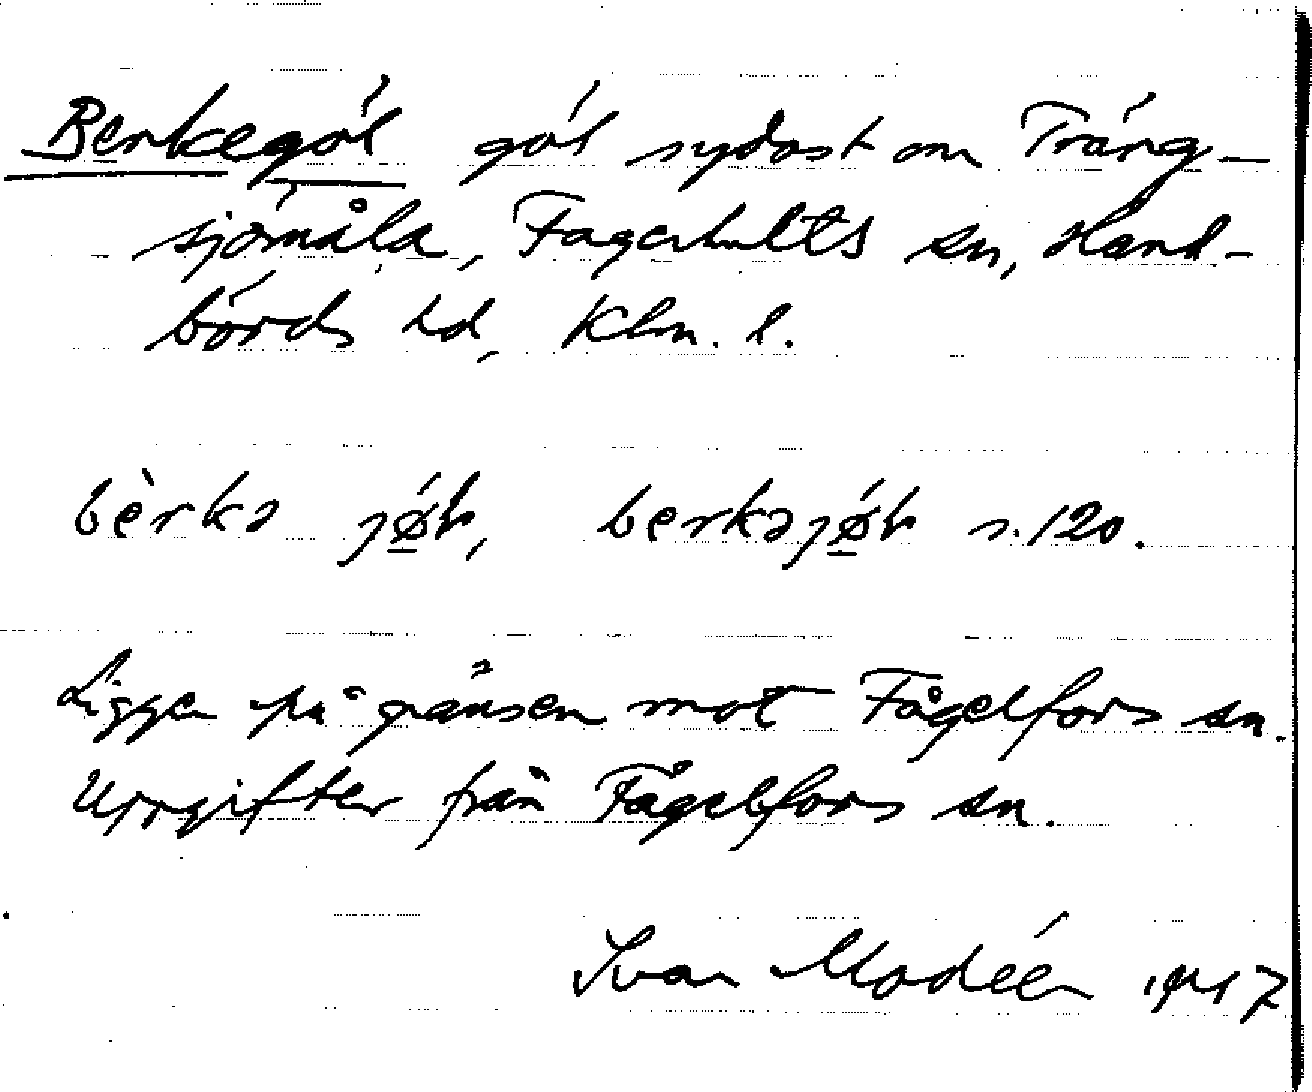 Berkegöl göl sydost om Träng-
sjömåla, Fagerhults sn, Hand-
börds hd, Klm. l.
bèrkə jø̱l, berkəjø̱l s. 120.
Ligger på gränsen mot Fågelfors sn.
Uppgifter från Fågelfors sn.
Ivar Modéer 1947